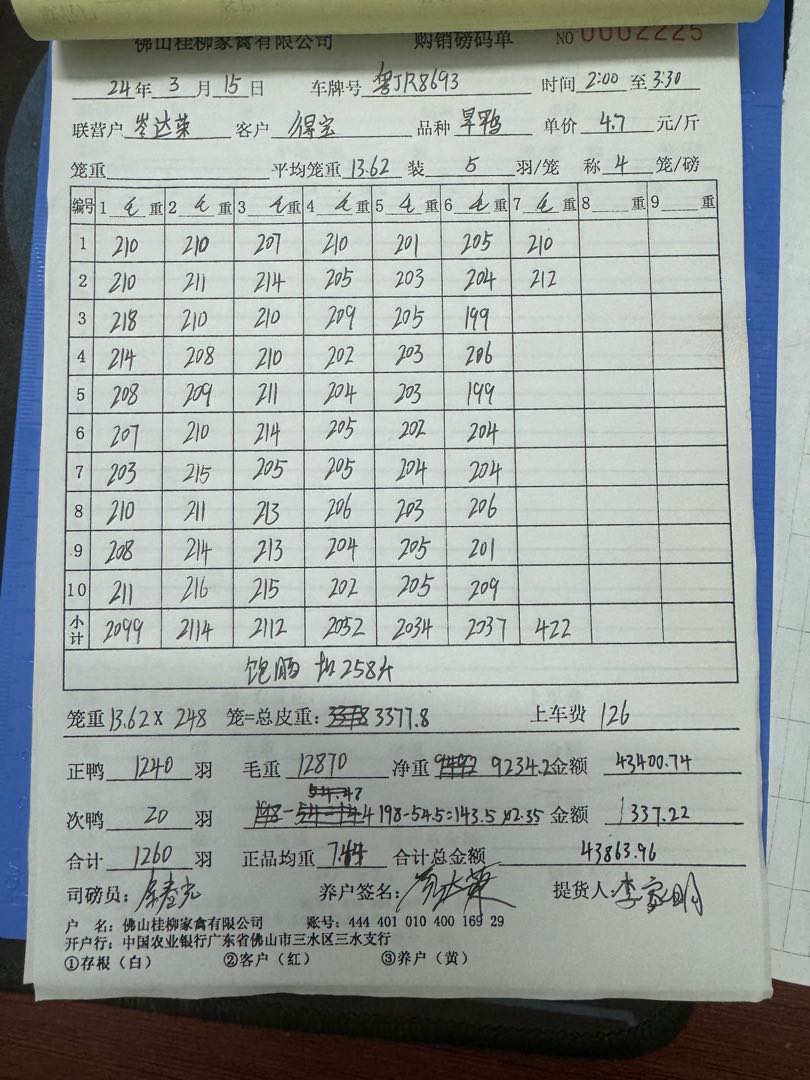 佛山桂柳家禽有限公司 购销磅码单 NO 0002225
24年 3月 15日 车牌号 粤JR8693 时间 2:00 至 3:30
联营户 岑达荣 客户 得宝 品种 旱鸭 单价 4.7 元/斤
笼重 平均笼重 13.62 装 5 羽/笼 称 4 笼/磅
编号 1 毛 重 2 毛 重 3 毛 重 4 毛 重 5 毛 重 6 毛 重 7 毛 重 8 重 9 重
1 210 210 207 210 201 205 210
2 210 211 214 205 203 204 212
3 218 210 210 209 205 199
4 214 208 210 202 203 206
5 208 209 211 204 203 199
6 207 210 214 205 202 204
7 203 215 205 205 204 204
8 210 211 213 206 203 206
9 208 214 213 204 205 201
10 211 216 215 202 205 209
小计 2099 2114 2112 2052 2034 2037 422
饱肠 扣258斤
笼重 13.62 X 248 笼=总皮重: 3378 3377.8 上车费 126
正鸭 1240 羽 毛重 12870 净重 9492 9234.2 金额 43400.74
次鸭 20 羽 198-54.5=143.5 x2.35 金额 337.22
合计 1260 羽 正品均重 合计总金额 43863.96
司磅员: 养户签名: 岑达荣 提货人: 李家明
户 名: 佛山桂柳家禽有限公司 账号: 444 401 010 400 169 29
开户行: 中国农业银行广东省佛山市三水区三水支行
①存根（白） ②客户（红） ③养户（黄）